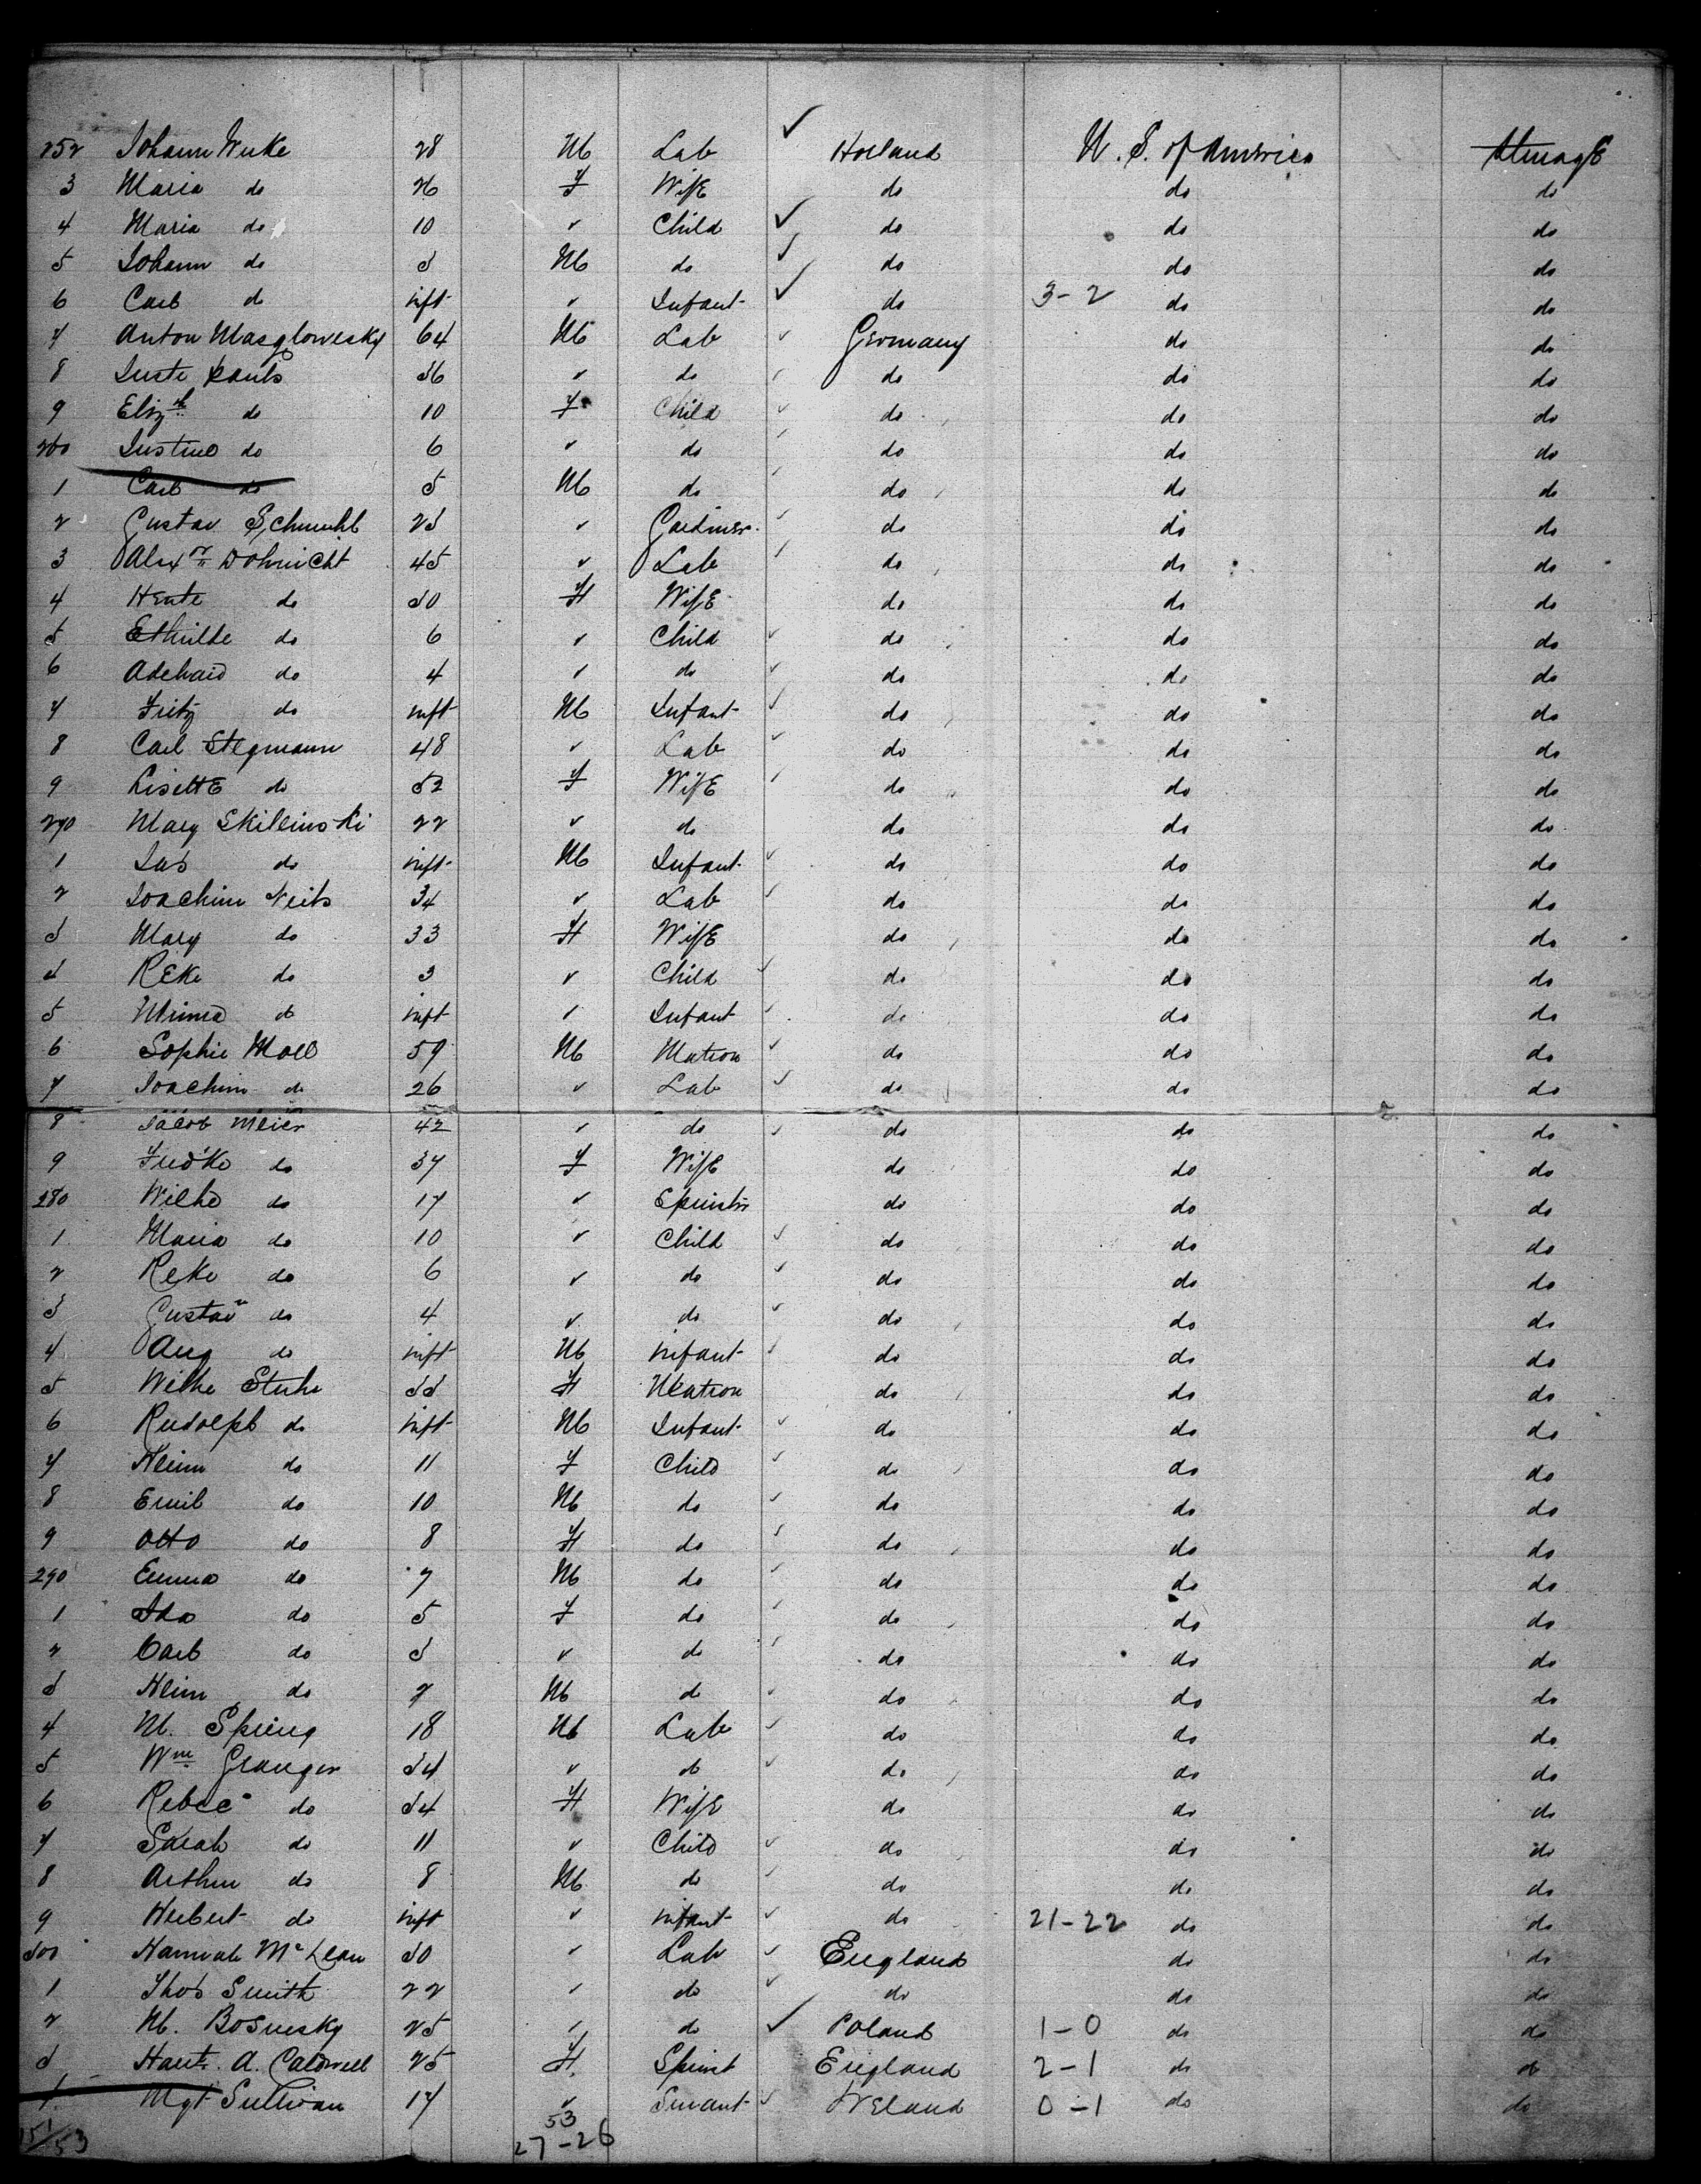 252 Johann Wuke 28 M Lab ✓ Holland U. S. of America Steerage
3 Maria do 26 F Wife do do do
4 Maria do 10 ✓ Child ✓ do do do
5 Johann do 3 M do ✓ do do do
6 Carl do inft ✓ Infant ✓ do 3-2 do do
7 Anton Masglowesky 64 M Lab ✓ Germany do do
8 Juste 36 ✓ do do do do
9 Elizth do 10 F Child ✓ do do do
260 Justine do 6 ✓ do do do do
1 Carl do 5 M do do do do
2 Gustav Schmuhl 23 ✓ Gardiner ✓ do do do
3 Alexr Dohnicht 45 ✓ Lab do do do
4 Hente do 30 F Wife do do do
5 Ethilde do 6 ✓ Child ✓ do do do
6 Adelhaid do 4 ✓ do ✓ do do do
7 Fritz do inft M Infant ✓ do do do
8 Carl Stegmann 48 ✓ Lab ✓ do do do
9 Lisette do 52 F Wife do do do
270 Mary Skillinski 22 ✓ do do do do
1 do inft M Infant ✓ do do do
2 Joachim Neils 34 ✓ Lab ✓ do do do
3 Mary do 33 F Wife do do do
4 Reke do 3 ✓ Child ✓ do do do
5 Minna do inft ✓ Infant do do do
6 Sophie Moll 59 M Matron ✓ do do do
7 Joachim do 26 ✓ Lab ✓ do do do
8 Jacob Meier 42 ✓ do ✓ do do do
9 Fredke do 37 F Wife do do do
280 Wilhe do 17 ✓ Spinster do do do
1 Maria do 10 ✓ Child ✓ do do do
2 Reke do 6 ✓ do ✓ do do do
3 Gustav do 4 ✓ do ✓ do do do
4 Aug do inft M infant do do do
5 Wilhe Stuhr 33 F Matron do do do
6 Rudolph do inft M Infant ✓ do do do
7 do 11 F Child do do do
8 Emil do 10 M do ✓ do do do
9 Otto do 8 F do do do do
290 Emma do 7 M do do do do
1 Ida do 5 F do do do do
2 Carl do 3 ✓ do do do do
3 do 2 M do ✓ do do do
4 M. Spring 18 M Lab ✓ do do do
5 Wm Granger 34 ✓ do ✓ do do do
6 Rebec do 34 F Wife do do do
7 Sarah do 11 ✓ Child ✓ do do do
8 Arthur do 8 M do do do do
9 Herbert do inft ✓ infant ✓ do 21-22 do do
300 Hannah McLean 30 ✓ Lab ✓ England do do
1 Thos Smith 22 ✓ do ✓ do do do
2 M. Bosnesky 25 ✓ do ✓ Poland 1-0 do do
3 A. Caldwell 25 F Spinst England 2-1 do do
4 Mgt Sullivan 17 ✓ Servant ✓ Ireland 0-1 do do
53
27-26
151/53